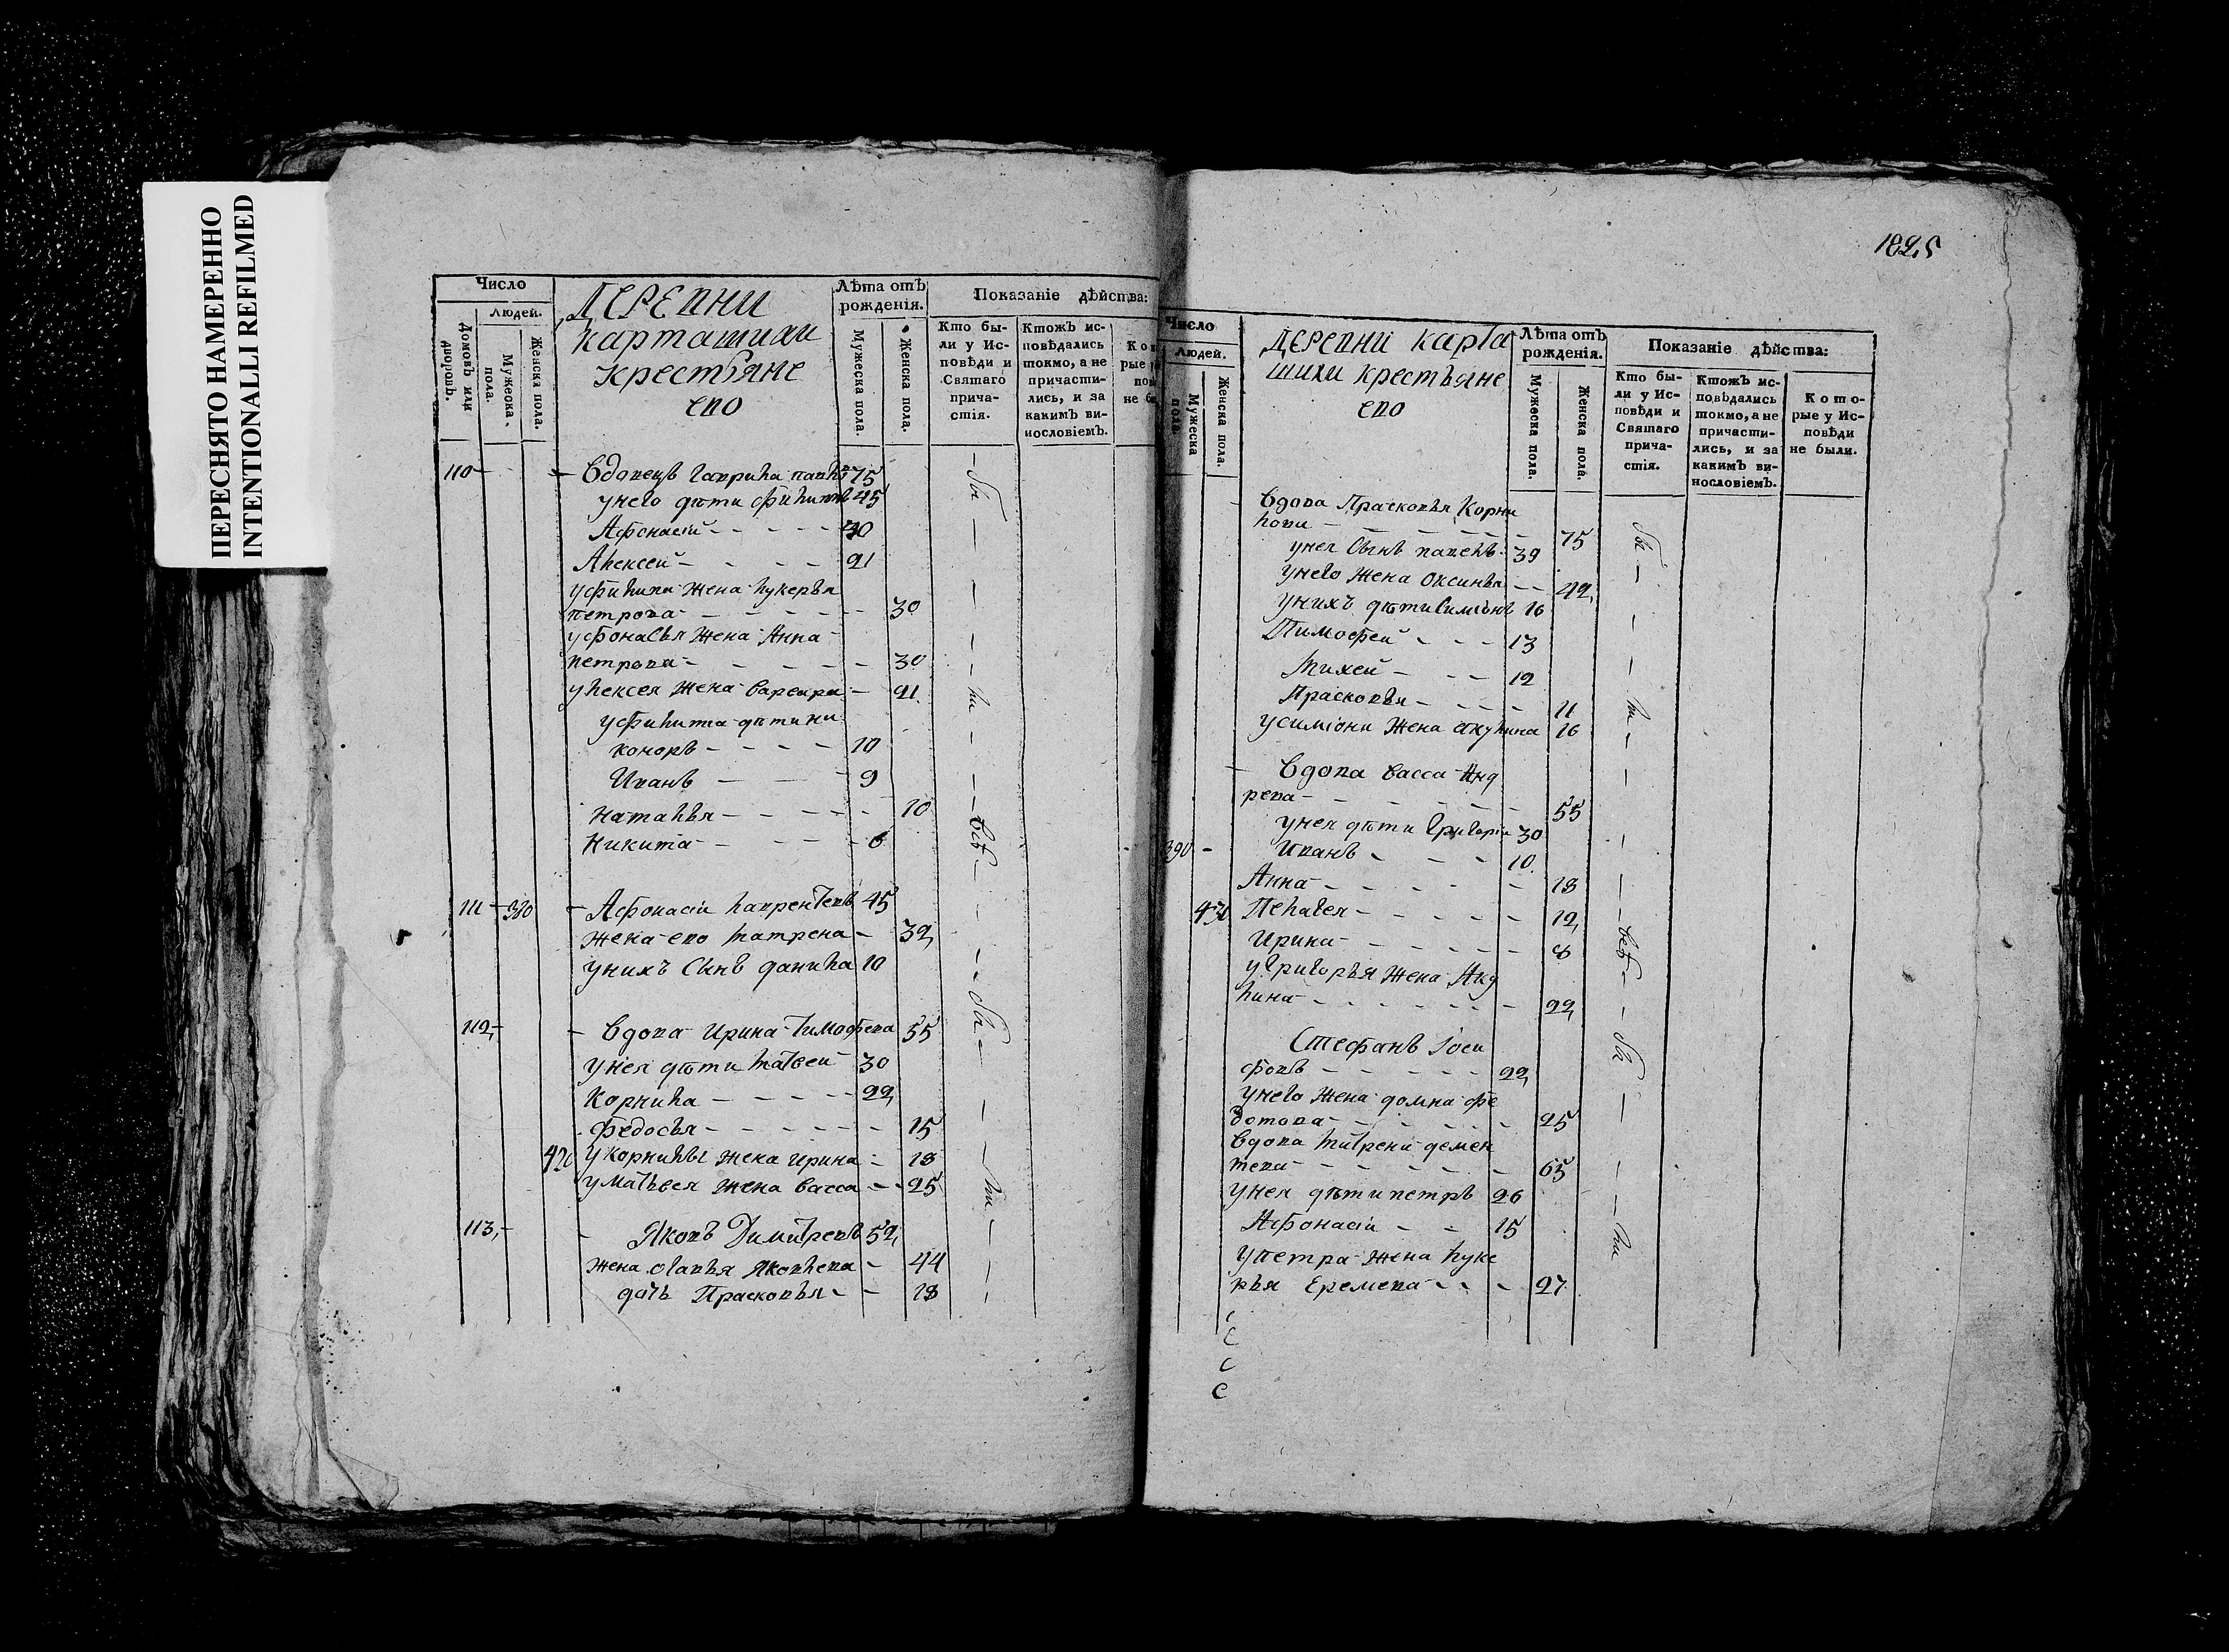 ПЕРЕСНЯТО НАМЕРЕННО
INTENTIONALLI REFILMED
Число
Людей.
Домовъ или дворовъ.
Мужеска пола.
Женска пола.
Деревни
Карташихи
крестьяне
ево
Лѣта отъ рожденія.
Мужеска пола.
Женска пола.
Показаніе дѣйства:
Кто бы-
ли у Ис-
повѣди и
Святаго
прича-
стія.
Ктожъ ис-
повѣдались
токмо, а не
причасти-
лись, и за
какимъ ви-
нословіемъ.
110 - Вдовецъ Гаврила 75
у него дѣти Филипъ 45
Афонасій - 30
Алексей - 21
у Филипа жена Лукерья
петрова - 30
у Афонасья жена Анна
петрова - 30
у Алексея жена варвара - 21
у Филипа дѣти ни
каноръ - 10
Иванъ - 9
Наталья - 10
Никита - 6
111 - 380 - Афонасіи лаврентевъ 45
жена ево матрена - 32
у нихъ сынъ данила 10
112 - Вдова Ирина Тимофева 55
у нея дѣти матвей 30
Корнила - 22
Федосья - 15
420 у Корнилы жена ирина - 18
у матвея жена васса - 25
113 - Яковъ Димитревъ 52
жена Яковлева - 44
дочь Прасковья - 18
бы
ли
всѣ
бы
ли
1825
Число
Людей.
Мужеска пола.
Женска пола.
Деревни Карта
шихи крестьяне
ево
Лѣта отъ
рожденія.
Мужеска пола.
Женска пола.
Показаніе дѣйства:
Кто бы-
ли у Ис-
повѣди и
Святаго
прича-
стія.
Ктожъ ис-
повѣдались
токмо, а не
причасти-
лись, и за
какимъ ви-
нословіемъ.
Кото-
рые у Ис-
повѣди
не были.
Вдова Прасковья Корни
лова - 75
у нея сынъ павелъ 39
у него жена оксинья - 42
у нихъ дѣти Симіонъ 16
Тимофей - 13
михей - 12
Прасковья - 11
у симіона жена акулина 16
Вдова васса Анд
рева - 55
у нея дѣти Григоріи 30
390 - Иванъ - 10
Анна - 18
430 Пелагея - 12
Ирина - 8
у Григорья жена Аку
лина - 22
Стефанъ Іоси
фовъ - 22
у него жена домна фе
дотова - 25
вдова матрена демен
тева - 65
у нея дѣти петръ 26
Афонасіи - 15
у петра жена луке
рья Еремева - 27
бы
ли
всѣ
бы
ли